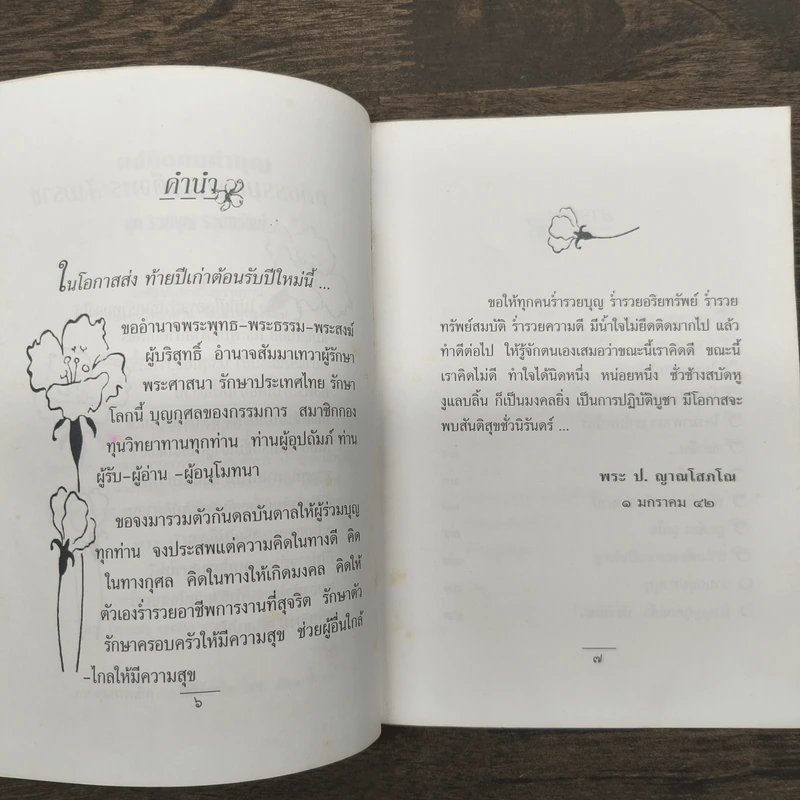 คำนำ
ในโอกาสส่ง ท้ายปีเก่าต้อนรับปีใหม่นี้ ...
ขออำนาจพระพุทธ-พระธรรม-พระสงฆ์
ผู้บริสุทธิ์ อำนาจสัมมาเทวาผู้รักษา
พระศาสนา รักษาประเทศไทย รักษา
โลกนี้ บุญกุศลของกรรมการ สมาชิกกอง
ทุนวิทยาทานทุกท่าน ท่านผู้อุปถัมภ์ ท่าน
ผู้รับ-ผู้อ่าน -ผู้อนุโมทนา
ขอจงมารวมตัวกันดลบันดาลให้ผู้ร่วมบุญ
ทุกท่าน จงประสพแต่ความคิดในทางดี คิด
ในทางกุศล คิดในทางให้เกิดมงคล คิดให้
ตัวเองร่ำรวยอาชีพการงานที่สุจริต รักษาตัว
รักษาครอบครัวให้มีความสุข ช่วยผู้อื่นใกล้
-ไกลให้มีความสุข
๖
ขอให้ทุกคนร่ำรวยบุญ ร่ำรวยอริยทรัพย์ ร่ำรวย
ทรัพย์สมบัติ ร่ำรวยความดี มีน้ำใจไม่ยึดติดมากไป แล้ว
ทำดีต่อไป ให้รู้จักตนเองเสมอว่าขณะนี้เราคิดดี ขณะนี้
เราคิดไม่ดี ทำใจได้นิดหนึ่ง หน่อยหนึ่ง ชั่วช้างสบัดหู
งูแลบลิ้น ก็เป็นมงคลยิ่ง เป็นการปฏิบัติบูชา มีโอกาสจะ
พบสันติสุขชั่วนิรันดร์ ...
พระ ป. ญาณโสภโณ
๑ มกราคม ๔๒
๗